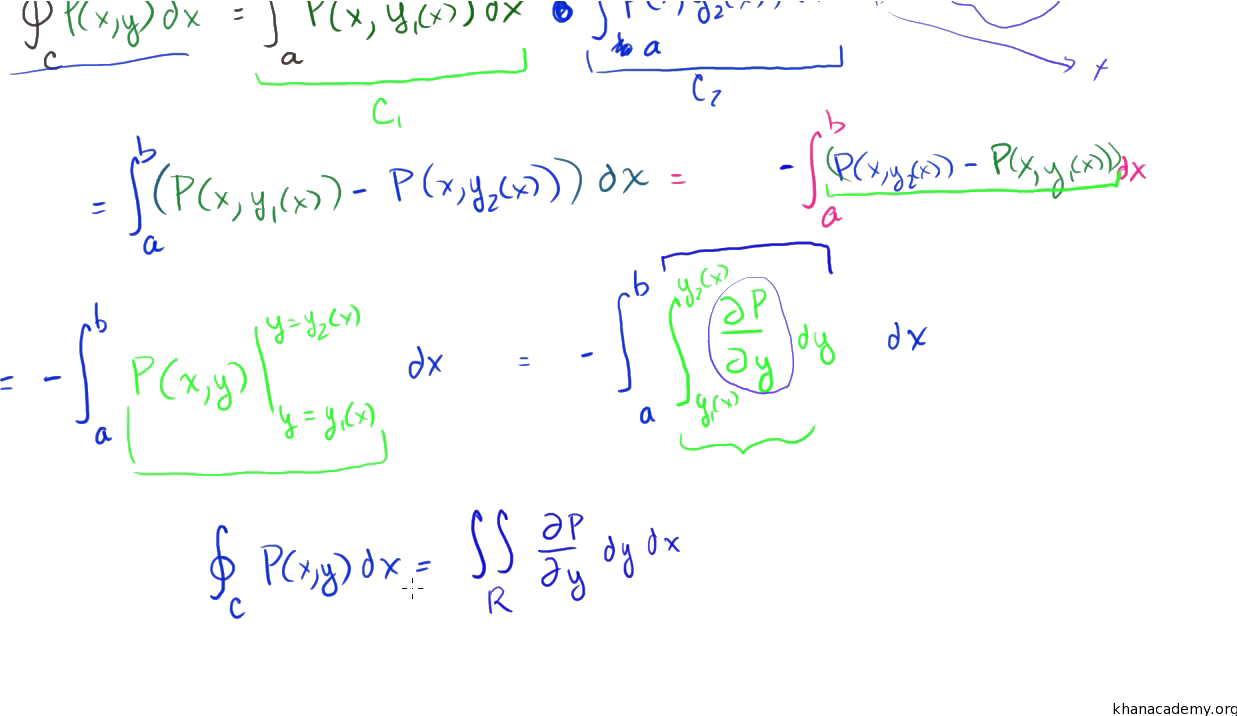 ∮_C P(x,y) dx = ∫_a P(x, y₁(x)) dx ∫_a
C₁ C₂ x
= ∫_a^b (P(x, y₁(x)) - P(x, y₂(x))) dx = - ∫_a^b (P(x, y₂(x)) - P(x, y₁(x))) dx
= - ∫_a^b P(x,y) |_{y = y₁(x)}^{y = y₂(x)} dx = - ∫_a^b ∫_{y₁(x)}^{y₂(x)} ∂P/∂y dy dx
∮_C P(x,y) dx = ∬_R ∂P/∂y dy dx
khanacademy.org